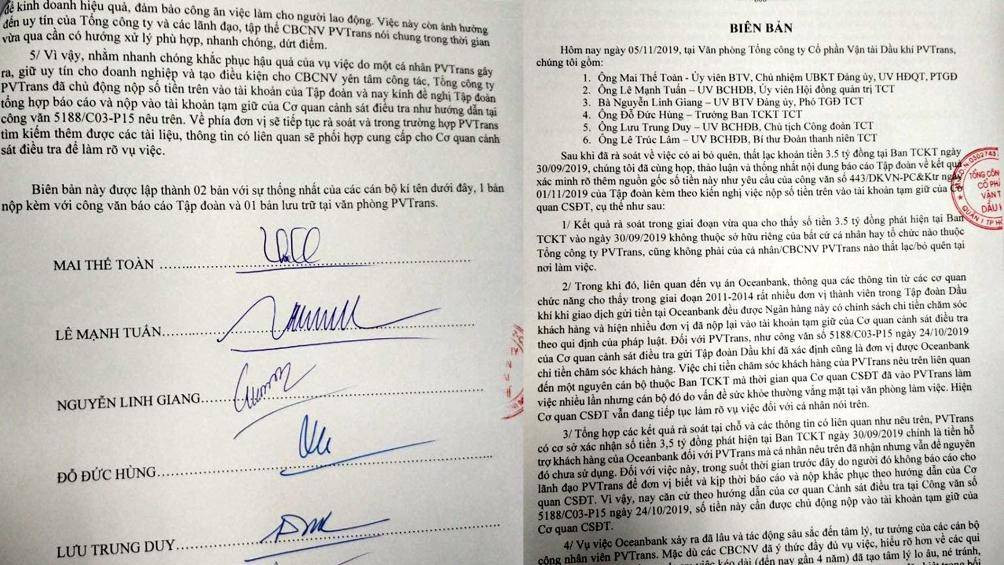 để kinh doanh hiệu quả, đảm bảo công ăn việc làm cho người lao động. Việc này còn ảnh hưởng
đến uy tín của Tổng công ty và các lãnh đạo, tập thể CBCNV PVTrans nói chung trong thời gian
vừa qua cần có hướng xử lý phù hợp, nhanh chóng, dứt điểm.
5/ Vì vậy, nhằm nhanh chóng khắc phục hậu quả của vụ việc do một cá nhân PVTrans gây
ra, giữ uy tín cho doanh nghiệp và tạo điều kiện cho CBCNV yên tâm công tác, Tổng công ty
PVTrans đã chủ động nộp số tiền trên vào tài khoản của Tập đoàn và nay kính đề nghị Tập đoàn
tổng hợp báo cáo và nộp vào tài khoản tạm giữ của Cơ quan cảnh sát điều tra như hướng dẫn tại
công văn 5188/C03-P15 nêu trên. Về phía đơn vị sẽ tiếp tục rà soát và trong trường hợp PVTrans
tìm kiếm thêm được các tài liệu, thông tin có liên quan sẽ phối hợp cung cấp cho Cơ quan cảnh
sát điều tra để làm rõ vụ việc.
Biên bản này được lập thành 02 bản với sự thống nhất của các cán bộ kí tên dưới đây, 1 bản
nộp kèm với công văn báo cáo Tập đoàn và 01 bản lưu trữ tại văn phòng PVTrans.
MAI THẾ TOÀN
LÊ MẠNH TUẤN
NGUYỄN LINH GIANG
ĐỖ ĐỨC HÙNG
LƯU TRUNG DUY
BIÊN BẢN
Hôm nay ngày 05/11/2019, tại Văn phòng Tổng công ty Cổ phần Vận tải Dầu khí PVTrans,
chúng tôi gồm:
1. Ông Mai Thế Toàn - Ủy viên BTV, Chủ nhiệm UBKT Đảng ủy, UV HĐQT, PTGĐ
2. Ông Lê Mạnh Tuấn – UV BCHĐB, Ủy viên Hội đồng quản trị TCT
3. Bà Nguyễn Linh Giang - UV BTV Đảng ủy, Phó TGĐ TCT
4. Ông Đỗ Đức Hùng – Trưởng Ban TCKT TCT
5. Ông Lưu Trung Duy – UV BCHĐB, Chủ tịch Công đoàn TCT
6. Ông Lê Trúc Lâm – UV BCHĐB, Bí thư Đoàn thanh niên TCT
Sau khi đã rà soát về việc có ai bỏ quên, thất lạc khoản tiền 3.5 tỷ đồng tại Ban TCKT ngày
30/09/2019, chúng tôi đã cùng họp, thảo luận và thống nhất nội dung báo cáo Tập đoàn về kết quả
xác minh rõ thêm nguồn gốc số tiền này như yêu cầu của công văn số 443/DKVN-PC&Ktr ngày
01/11/2019 của Tập đoàn kèm theo kiến nghị việc nộp số tiền trên vào tài khoản tạm giữ của Cơ
quan CSĐT, cụ thể như sau:
1/ Kết quả rà soát trong giai đoạn vừa qua cho thấy số tiền 3.5 tỷ đồng phát hiện tại Ban
TCKT vào ngày 30/09/2019 không thuộc sở hữu riêng của bất cứ cá nhân hay tổ chức nào thuộc
Tổng công ty PVTrans, cũng không phải của cá nhân/CBCNV PVTrans nào thất lạc/bỏ quên tại
nơi làm việc.
2/ Trong khi đó, liên quan đến vụ án Oceanbank, thông qua các thông tin từ các cơ quan
chức năng cho thấy trong giai đoạn 2011-2014 rất nhiều đơn vị thành viên trong Tập đoàn Dầu
khí khi giao dịch gửi tiền tại Oceanbank đều được Ngân hàng này có chính sách chi tiền chăm sóc
khách hàng và hiện nhiều đơn vị đã nộp lại vào tài khoản tạm giữ của Cơ quan cảnh sát điều tra
theo qui định của pháp luật. Đối với PVTrans, như công văn số 5188/C03-P15 ngày 24/10/2019
của Cơ quan cảnh sát điều tra gửi Tập đoàn Dầu khí đã xác định cũng là đơn vị được Oceanbank
chi tiền chăm sóc khách hàng. Việc chi tiền chăm sóc khách hàng của PVTrans nêu trên liên quan
đến một nguyên cán bộ thuộc Ban TCKT mà thời gian qua Cơ quan CSĐT đã vào PVTrans làm
việc nhiều lần nhưng cán bộ đó do vấn đề sức khỏe thường vắng mặt tại văn phòng làm việc. Hiện
Cơ quan CSĐT vẫn đang tiếp tục làm rõ vụ việc đối với cá nhân nói trên.
3/ Tổng hợp các kết quả rà soát tại chỗ và các thông tin có liên quan như nêu trên, PVTrans
có cơ sở xác nhận số tiền 3,5 tỷ đồng phát hiện tại Ban TCKT ngày 30/09/2019 chính là tiền hỗ
trợ khách hàng của Oceanbank đối với PVTrans mà cá nhân nêu trên đã nhận nhưng vẫn để nguyên
chưa sử dụng. Đối với việc này, trong suốt thời gian trước đây do người đó không báo cáo cho
lãnh đạo PVTrans để đơn vị biết và kịp thời báo cáo và nộp khắc phục theo hướng dẫn của Cơ
quan CSĐT. Vì vậy, nay căn cứ theo hướng dẫn của cơ quan Cảnh sát điều tra tại Công văn số
5188/C03-P15 ngày 24/10/2019, số tiền này cần được chủ động nộp vào tài khoản tạm giữ của
Cơ quan CSĐT.
4/ Vụ việc Oceanbank xảy ra đã lâu và tác động sâu sắc đến tâm lý, tư tưởng của các cán bộ
công nhân viên PVTrans. Mặc dù các CBCNV đã ý thức đầy đủ vụ việc, hiểu rõ hơn về các qui
việc kéo dài (đến nay gần 4 năm) đã tạo tâm lý lo âu, né tránh,
TỔNG CÔNG
CỔ PHẦN
VẬN T
DẦU K